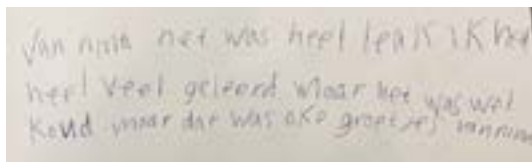 van nina het was heel leuk ik heb
heel veel geleerd maar het was wel
koud maar dat was oke groetjes van nina